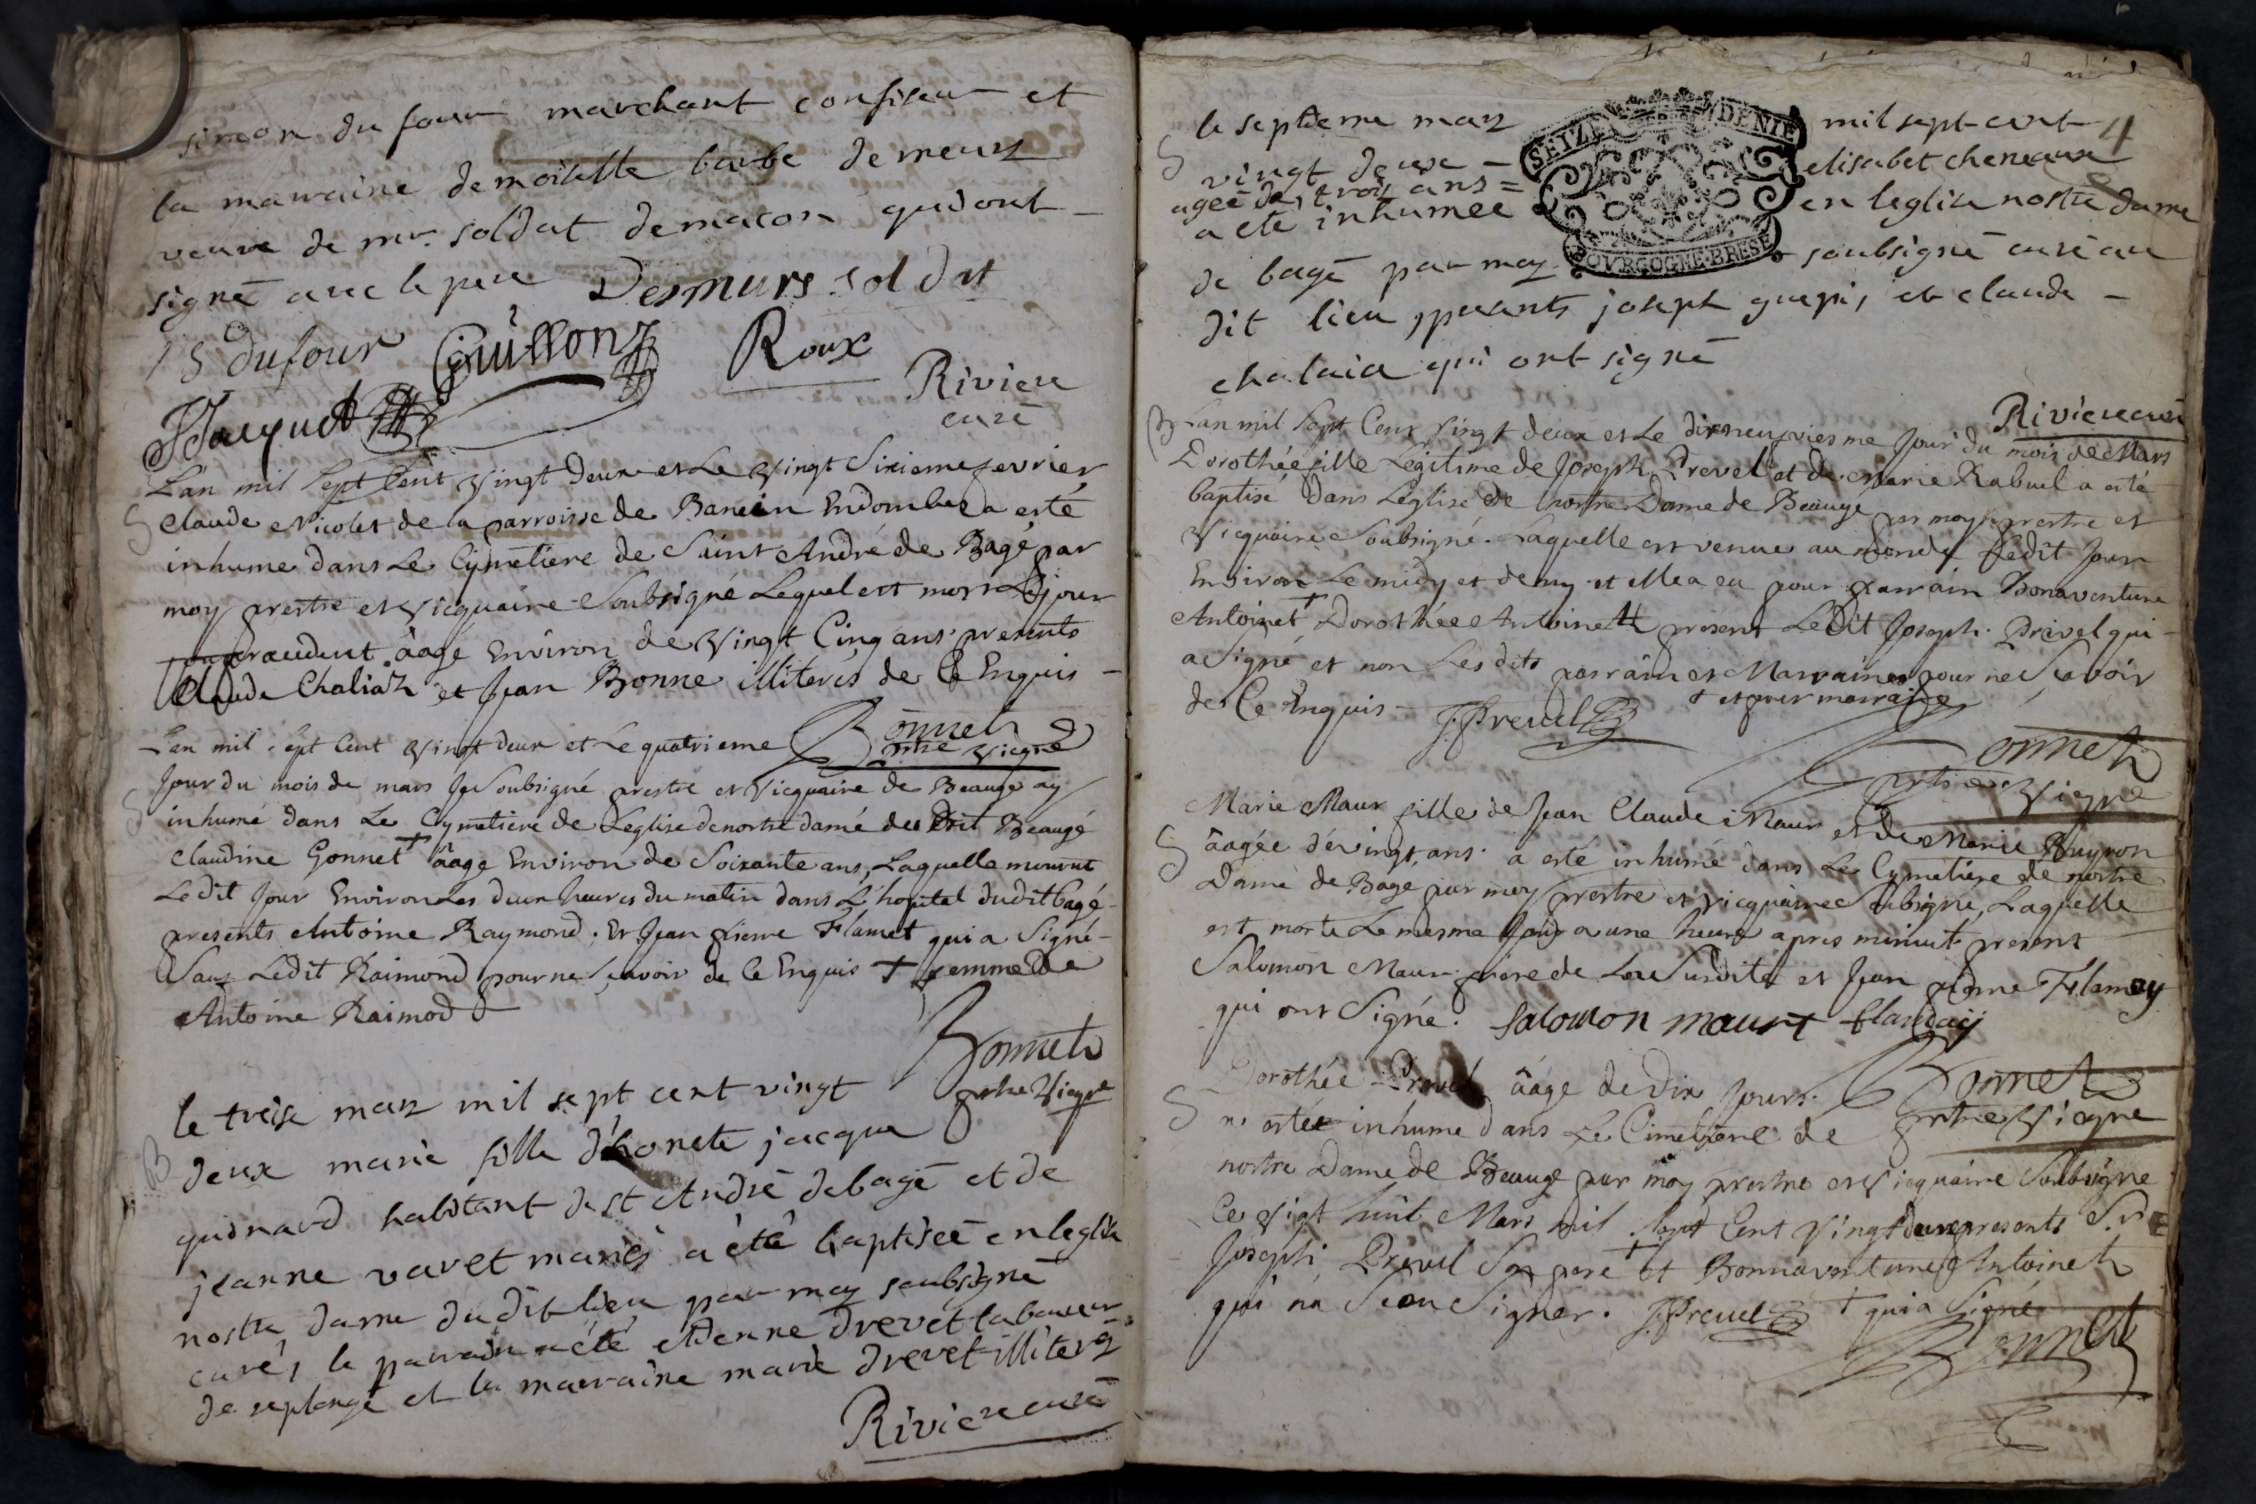 simon du four marchant confiseur et
la marraine demoiselle barbe demeurs
veuve de mr. soldat demacon qui ont
signé avec le pere Desmurs soldat
S dufour Guillon Roux
JJacquet Riviere
curé
L'an mil sept cent vingt deux et Le vingt Sixieme fevrier
claude Nicolet de la parroisse de Banein Endombes a esté
inhume dans Le Cymetiere de Saint André de Bagé par
moy prestre et vicquaire Soubsigné Lequel est mort Le jour
precedent âagé Environ de vingt Cinq ans presents
Claude Chaliaz et Jean Bonne illiterés de Ce Enquis
L'an mil sept Cent vingt deux et Le quatrieme Bonnet
prtre vicqre
Jour du mois de mars Je Soubsigné prestre et vicquaire de Beaugé ay
inhumé dans Le Cymetiere de Leglise de nostre damé du dit Beaugé
Claudine Gonnet + âage Environ de Soixante ans, Laquelle mourut
Le dit Jour Environ Les deux heures du matin dans L'hopital dudit bagé
presents Antoine Raymond. Et Jean pierre Flamet qui a Signé
Sauf Ledit Raimond pour ne Scavoir de Ce Enquis + femme de
Antoine Raimod
Bonnet
prtre Vicqre
le treise mars mil sept cent vingt
deux marie fille d'honete jacque
guinard habitant de st André de bagé et de
jeanne varet mariés a été baptiseé en leglise
nostre dame du dit lieu par moy soubsigné
curé, le parrain a été etienne drevet laboureur
de replonge et la marraine marie drevet illiteres
Riviere curé
4
le septieme mars mil sept cent
vingt deux elisabet cheneaux
ageé de trois ans =
a eté inhumeé en leglise nostre dame
SEIZE DENIE
BOVRGOGNE·BRESE
de bagé par moy soubsigné curé au
dit lieu, presants joseph guepi, et claude
chalaia qui ont signé
Riviere curé
L'an mil Sept Cent vingt deux et Le dixneuviesme Jour du mois de Mars
Dorothée fille Legitime de Joseph Prevel et de Marie Rabuel a esté
baptisé dans Leglise de nostre Dame de Beaugé par moy prestre et
vicquaire Soubsigné. Laquelle est venue au monde Ledit Jour
Environ Le midy et demy et elle a eu pour parrain Bonaventure
Antoinet + Dorothée Antoinett present Ledit Joseph Prevel qui
a Signé et non Lesdits parrain et Marraines pour ne Scavoir
de Ce Enquis + et pour marraine
J. Prevel
Bonnet
prtre et Vicqre
Marie Maur fille de Jean Claude Maur et de Marie Buyron
âagée de vingt ans a esté inhumé dans Le Cymetiere de nostre
Dame de Bage par moy prestre et vicquaire Soubsigné, Laquelle
est morte Le mesme Jour a une heure apres minuit present
Salomon Maur frere de La Susdite et Jean pierre Flamey
qui ont Signé. salomon maurt
Bonnet
prtre Vicqre
Dorothée Prevel âage de dix Jours.
a esté inhume dans Le Cimetiere de
nostre Dame de Beauge par moy prestre et vicquaire Soubsigne
Ce vigt huit Mars mil Sept Cent vingt deux presents Sr
Joseph Prevel Son pere + et Bonnaventure Antoinet
qui n'a Sceu Signer. J. Prevel + qui a Signé
Bonnett